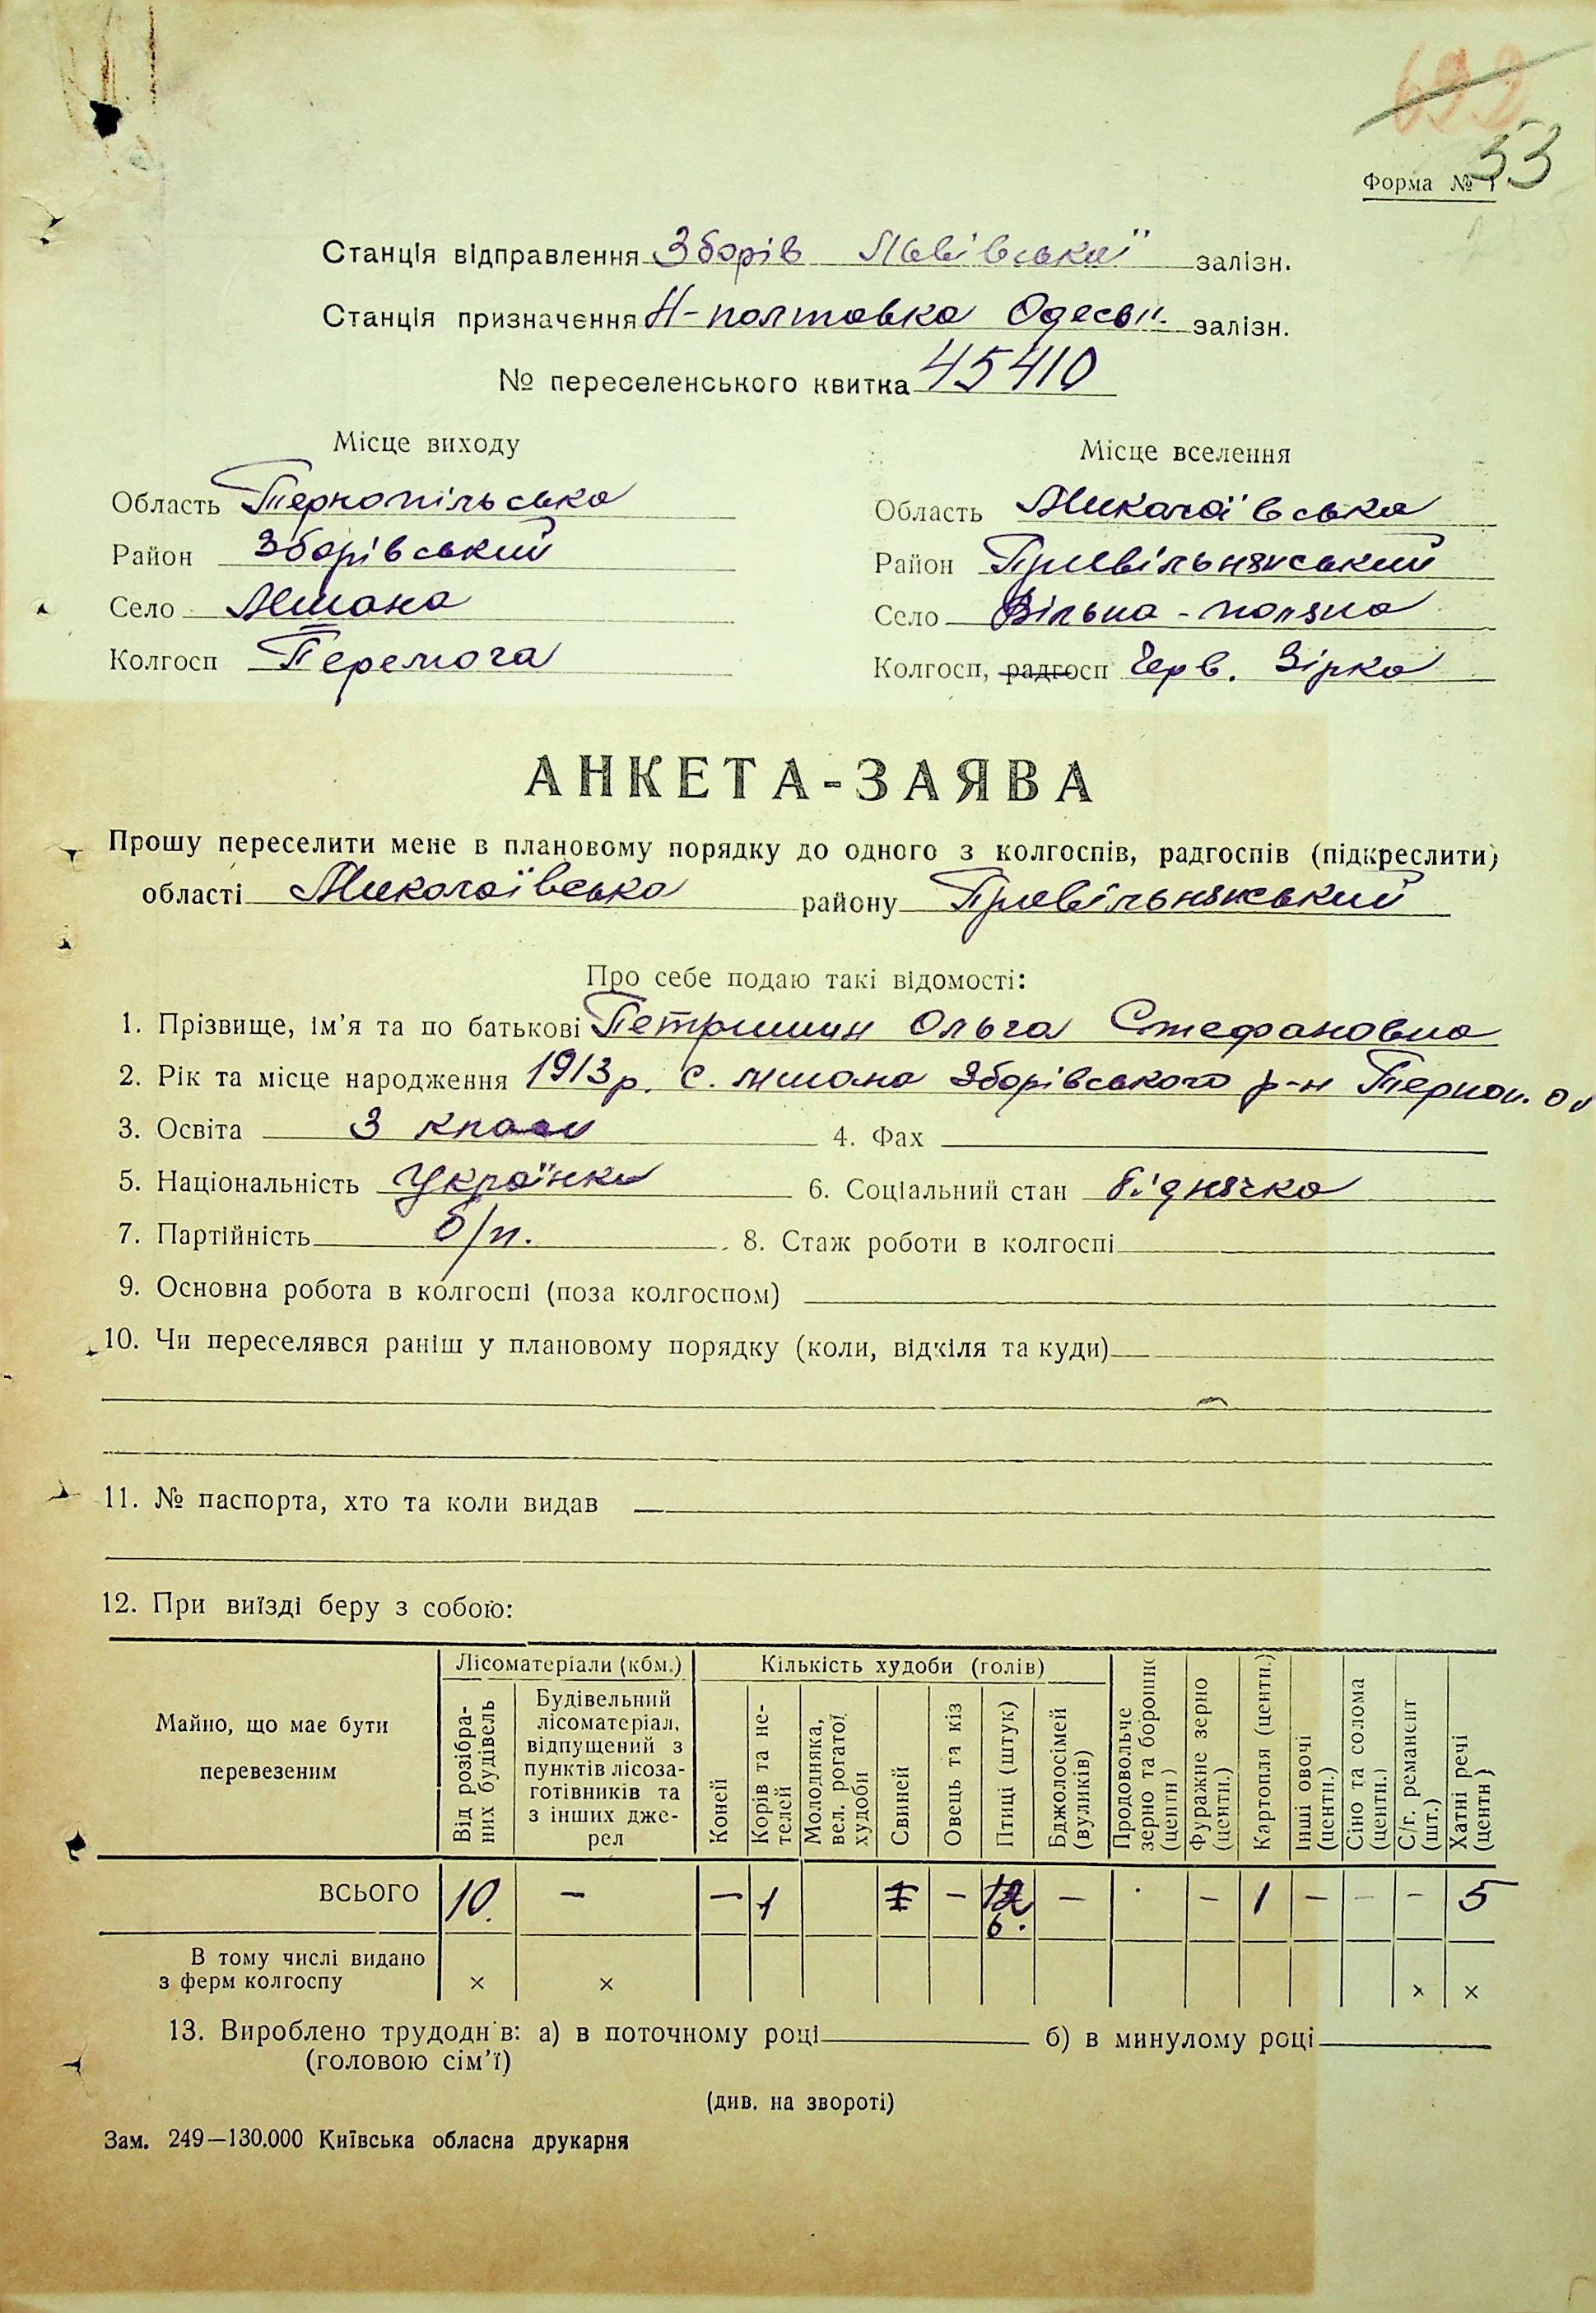 692
53
Форма № 1
Станція відправлення Зборів Львівської залізн.
Станція призначення Н-полтавка Одеськ. залізн.
№ переселенського квитка 45410
Місце виходу
Область Тернопільська
Район Зборівський
Село Мшана
Колгосп Перемога
Місце вселення
Область Миколаївська
Район Привільнянський
Село Вільна-поляна
Колгосп, радгосп Черв. Зірка
АНКЕТА-ЗАЯВА
Прошу переселити мене в плановому порядку до одного з колгоспів, радгоспів (підкреслити)
області Миколаївська району Привільнянський
Про себе подаю такі відомості:
1. Прізвище, ім’я та по батькові Петришин Ольга Стефановна
2. Рік та місце народження 1913р. с. Мшана Зборівського р-н Терноп. об
3. Освіта 3 класи 4. Фах
5. Національність Українка 6. Соціальний стан біднячка
7. Партійність б/п. 8. Стаж роботи в колгоспі
9. Основна робота в колгоспі (поза колгоспом)
10. Чи переселявся раніш у плановому порядку (коли, відкіля та куди)
11. № паспорта, хто та коли видав
12. При виїзді беру з собою:
Майно, що має бути перевезеним
Лісоматеріали (кбм.)
Від розібраних будівель
Будівельний лісоматеріал, відпущений з пунктів лісозаготівників та з інших джерел
Кількість худоби (голів)
Коней
Корів та нетелей
Молодняка, вел. рогатої худоби
Свиней
Овець та кіз
Птиці (штук)
Бджолосімей (вуликів)
Продовольче зерно та борошно (центн)
Фуражне зерно (центн.)
Картопля (центн.)
Інші овочі (центн.)
Сіно та солома (центн.)
С/г. реманент (шт.)
Хатні речі (центн)
ВСЬОГО 10. – – 1 1 – 12 6. – – 1 – – – 5
В тому числі видано з ферм колгоспу × × × ×
13. Вироблено трудоднів: а) в поточному році б) в минулому році
(головою сім’ї)
(див. на звороті)
Зам. 249—130.000 Київська обласна друкарня